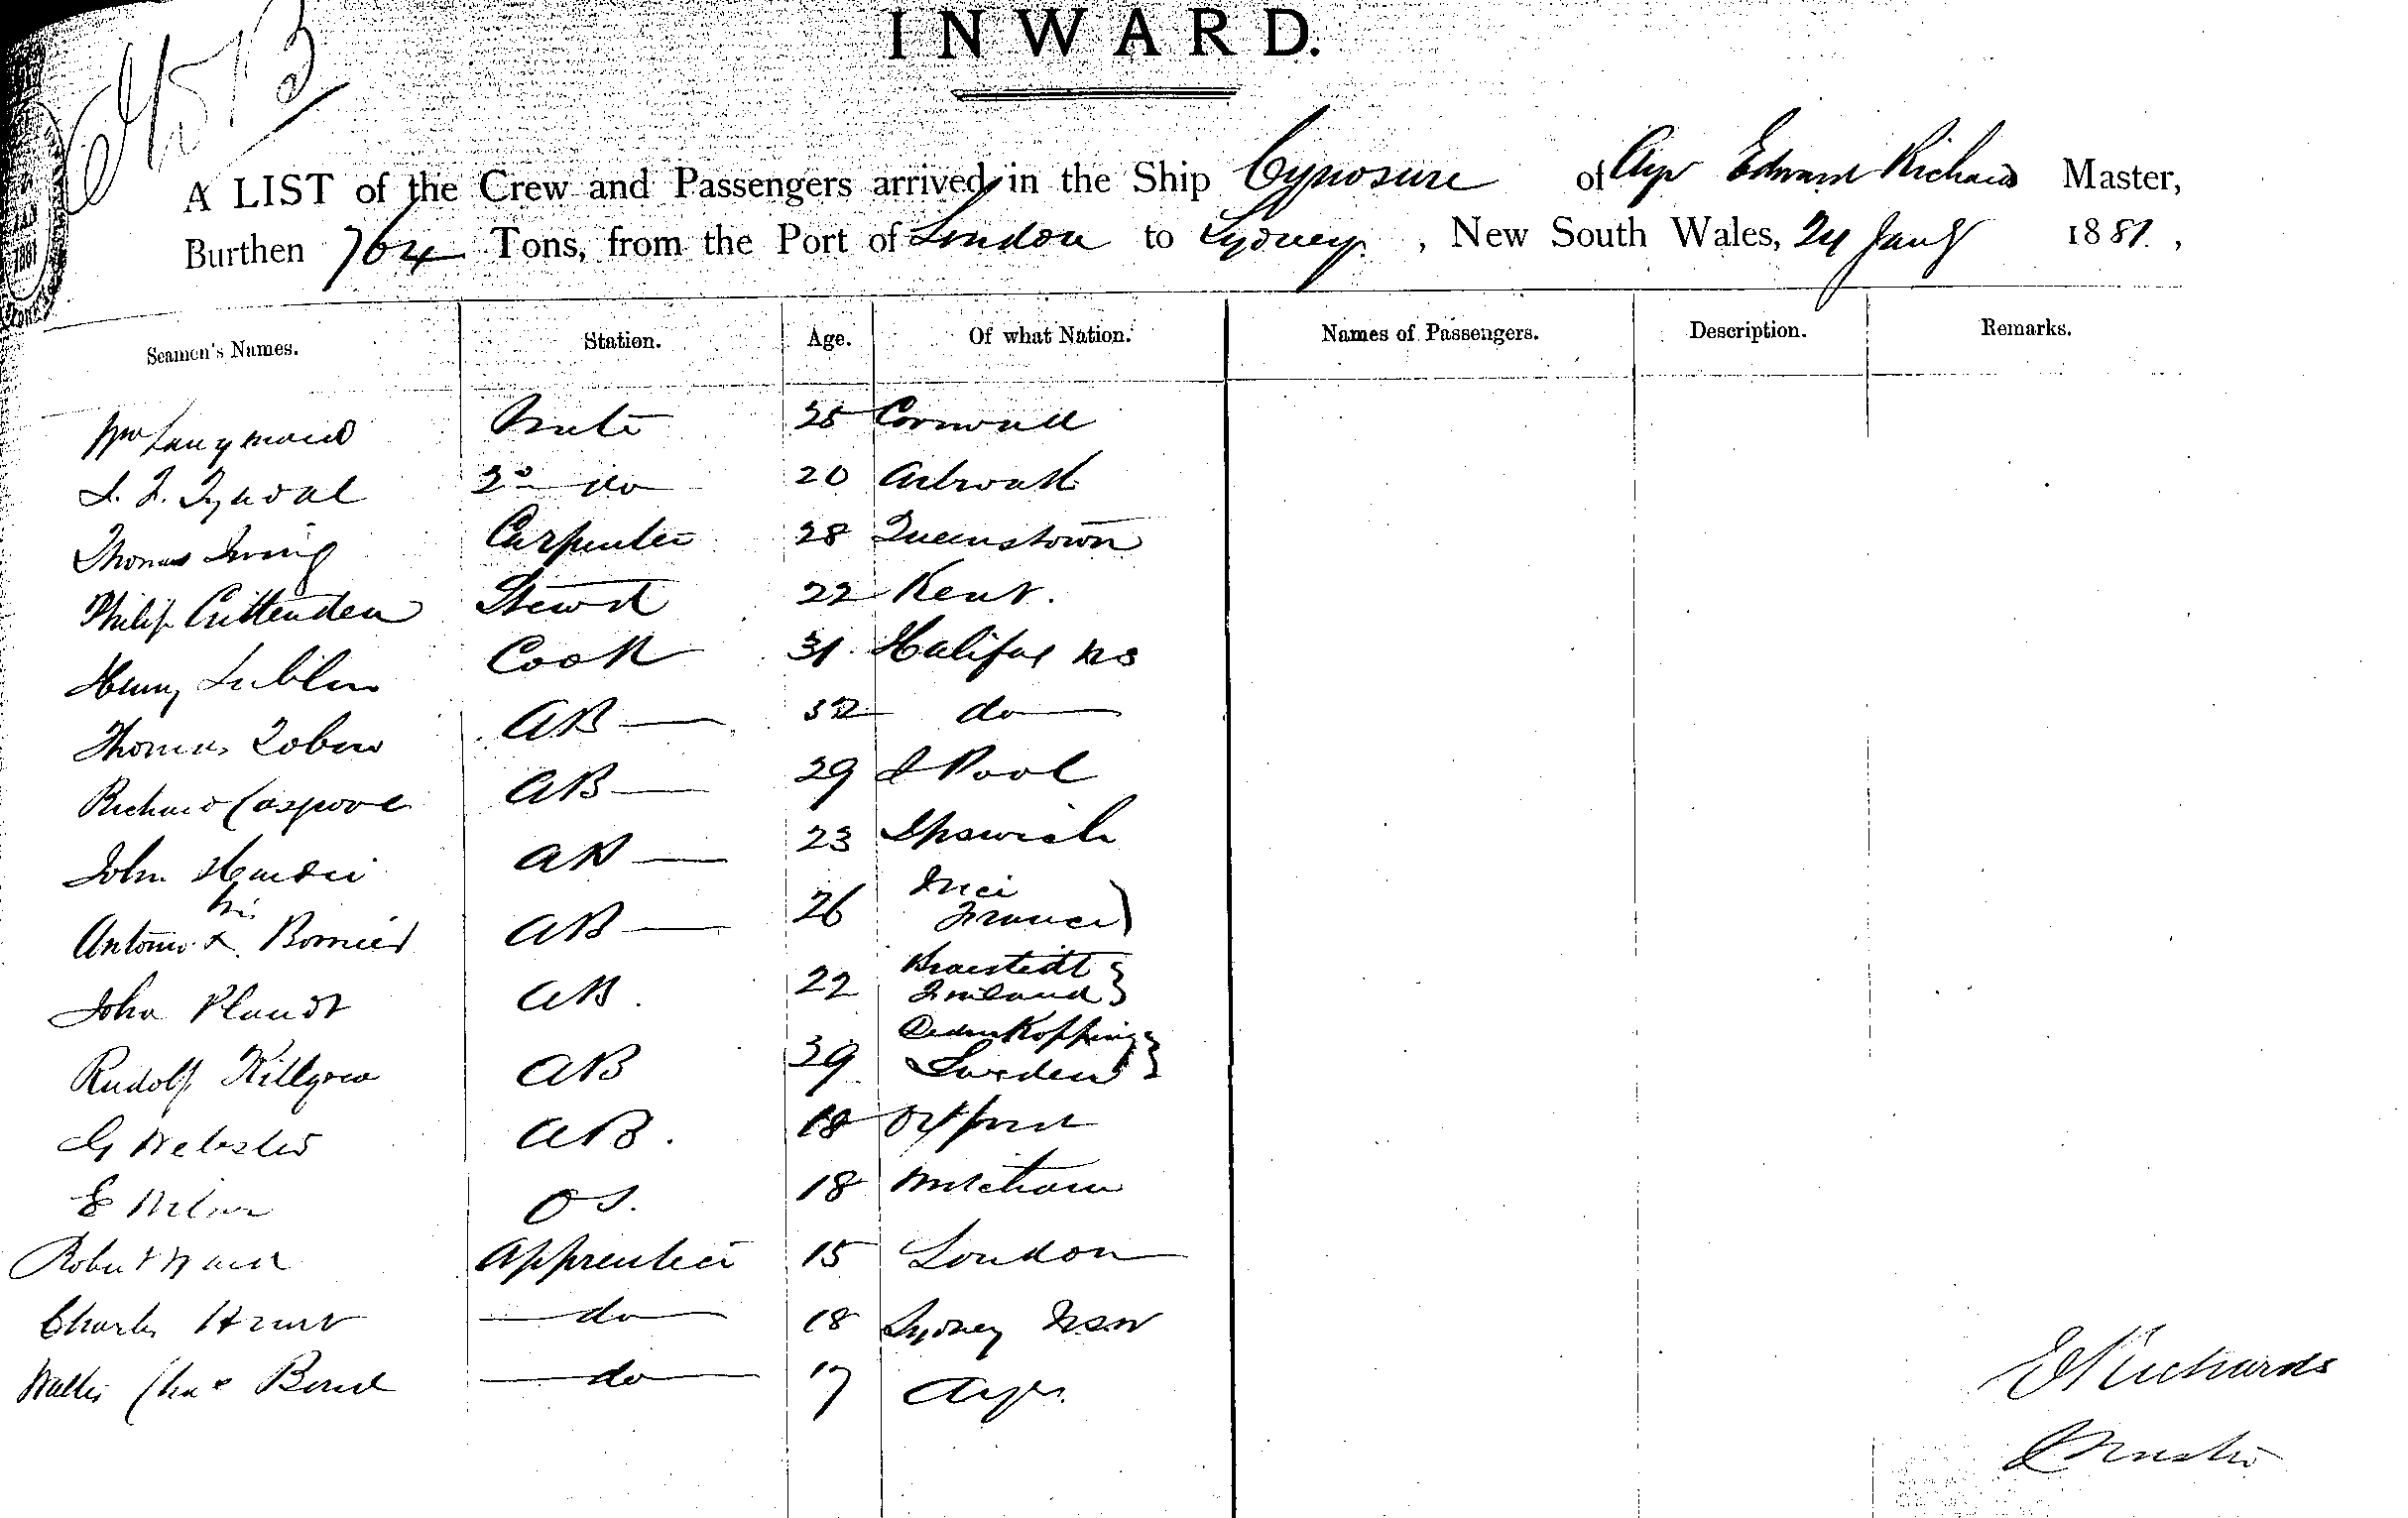 INWARD.
A LIST of the Crew and Passengers arrived in the Ship Cynosure of Ayr Edward Richards Master,
Burthen 764 Tons, from the Port of London to Sydney. , New South Wales, 24 Jany 1881. ,
Seamen's Names. Station. Age. Of what Nation. Names of Passengers. Description. Remarks.
Wm Langmaid Mate 25 Cornwall
20
Thomas Irving Carpenter 28 Queenstown
Philip Crittenden Stewd 22 Kent.
Henry Cook 31 Halifax NS
Thomas Tobin AB 32 do
Richard AB 29 LPool
John AB 23 Ipswich
his
Antonio x AB 26 France
John AB. 22
Rudolf AB 39 Sweden
G Webster AB. 18 Oxford
E OS. 18 Mitcham
Robert Ward Apprentice 15 London
Charles Hunt do 18 Sydney NSW
Walter Chas Bond do 17 Ayr.
E Richards
Master